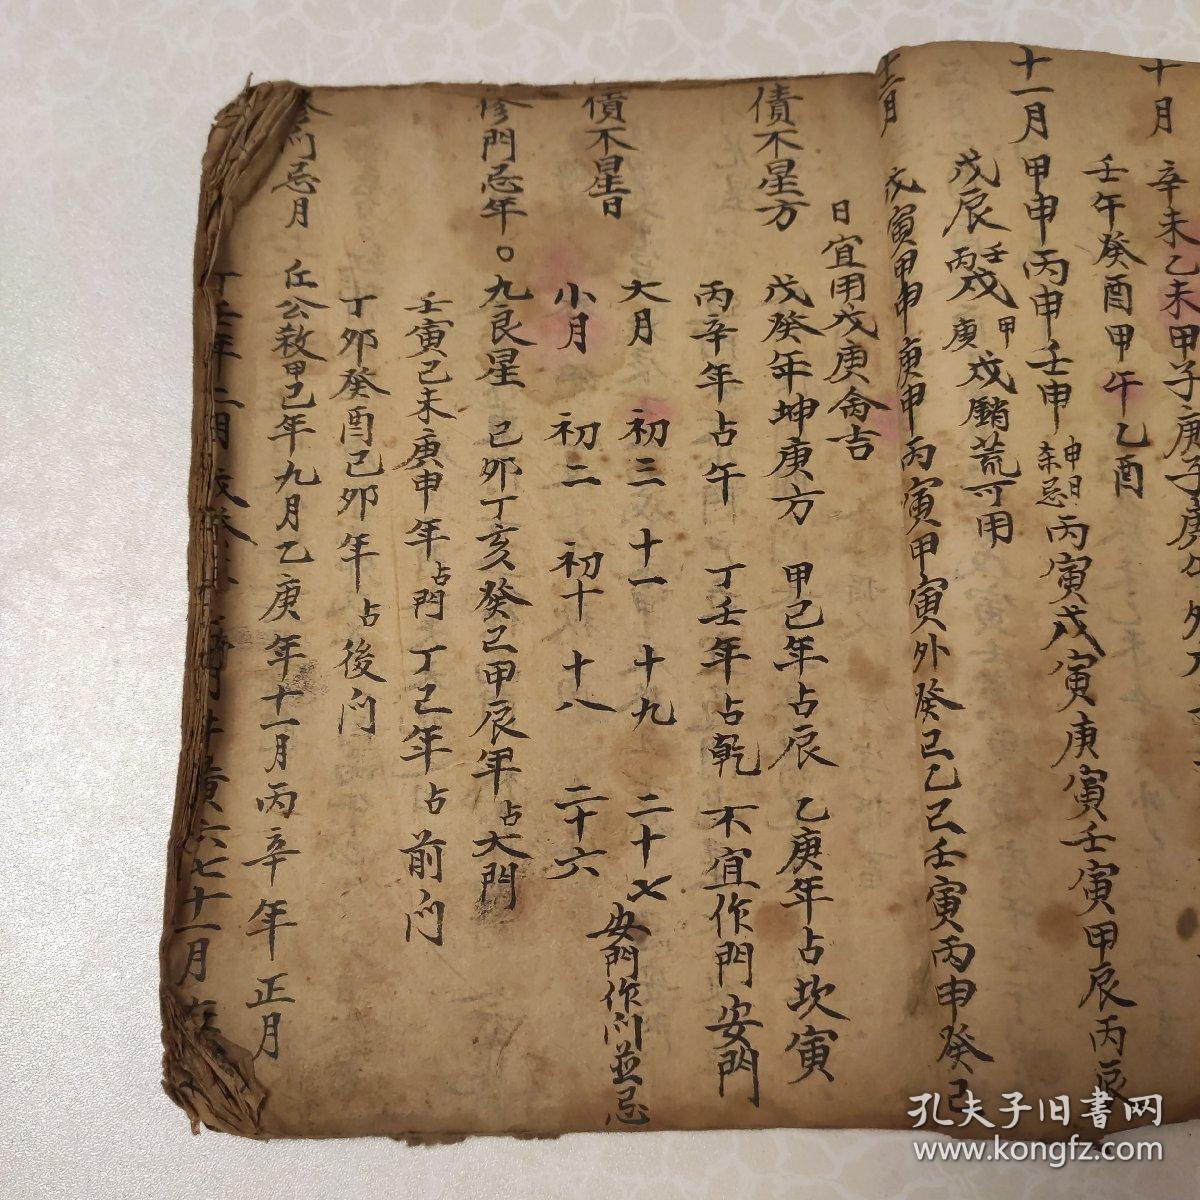 十月 辛未乙未甲子庚子庚
壬午癸酉甲午乙酉
十一月 甲申丙申壬申 申日忌 丙寅戊寅庚寅壬寅甲辰丙辰
戊辰 壬丙戌 甲庚戌 可用
十二月 戊寅甲申庚申丙寅甲寅外癸己乙己壬寅丙申癸己
日宜用戊庚
債不星方 戊癸年坤庚方 甲己年占辰 乙庚年占坎寅
丙辛年占午 丁壬年占乾 不宜作門安門
債不星日 大月 初三 十一 十九 二十七 安門作门並忌
小月 初二 初十 十八 二十六
修門忌年○九良星 己卯丁亥癸己甲辰年占大門
壬寅己未庚申年占門 丁己年占前门
丁卯癸酉己卯年占後门
门忌月 丘公救甲己年九月乙庚年十一月丙辛年正月
丁壬年二月戊癸
孔夫子旧書网
www.kongfz.com